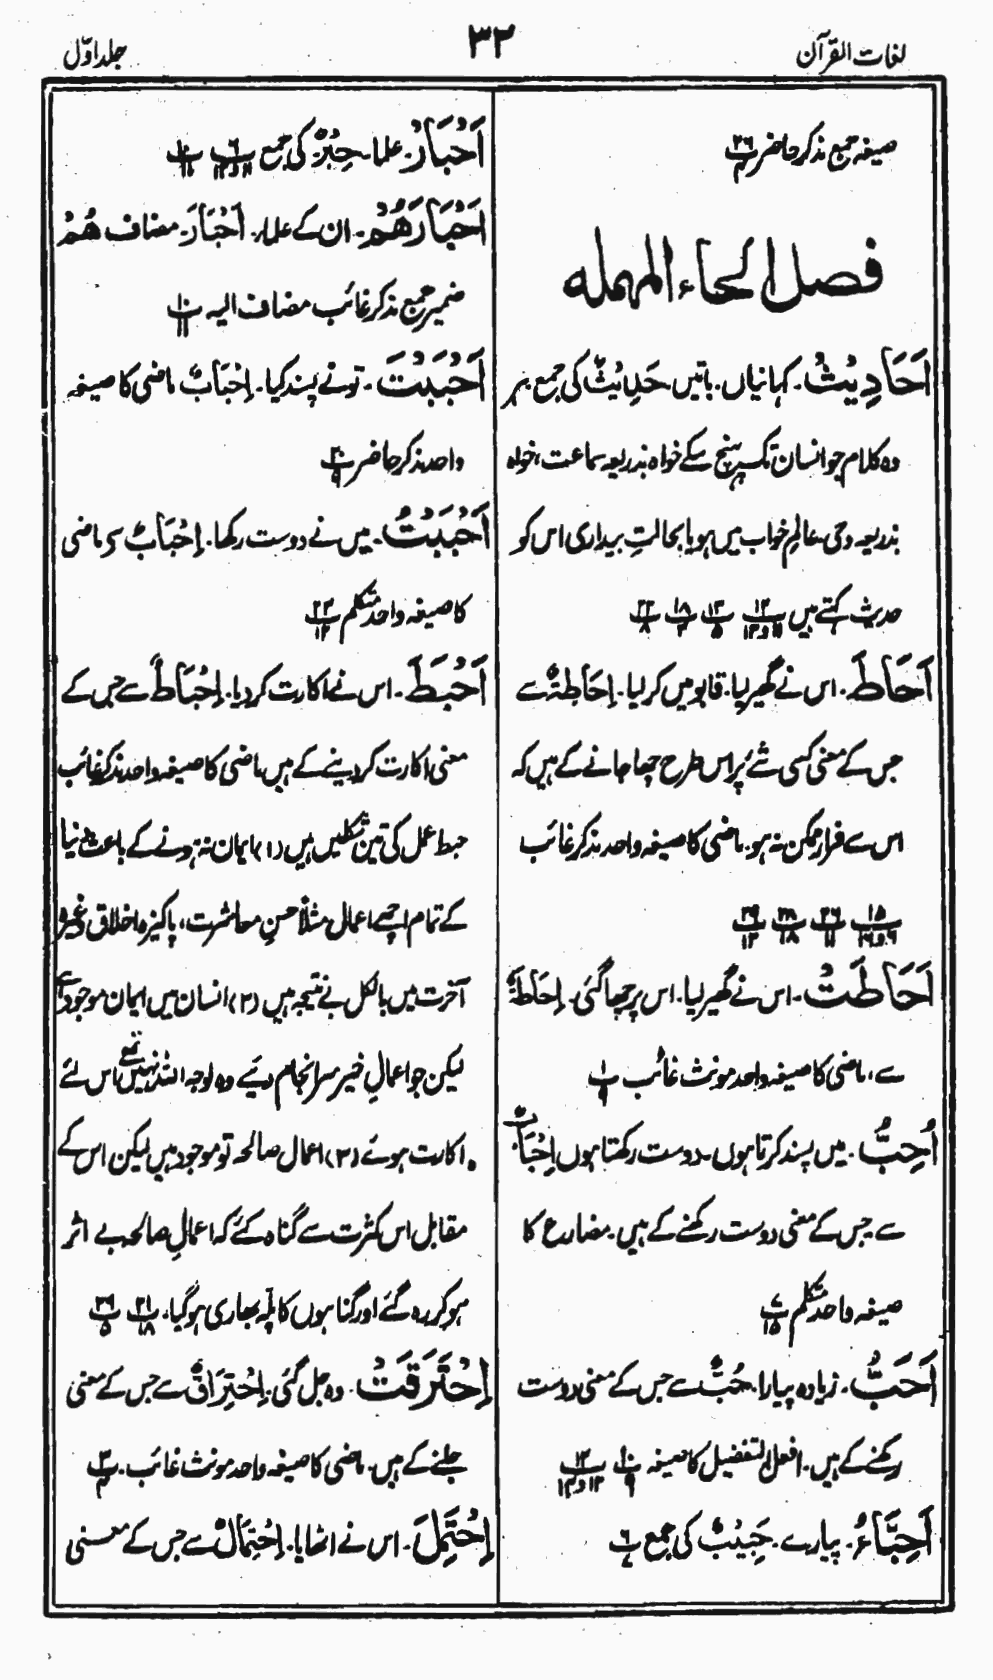 لغات القرآن
۳۲
جلد اوّل
صیغہ جمع مذکر حاضر ۲۶/۴
فصل الحاء المہملہ
اَحَادِیْثُ۔ کہانیاں۔ باتیں۔ حَدِیْثٌ کی جمع ہر
وہ کلام جو انسان تک پہنچ سکے خواہ بذریعہ سماعت، خواہ
بذریعہ وحی۔ عالمِ خواب میں ہو یا بحالتِ بیداری اس کو
حدیث کہتے ہیں ۱۲/۱۱و۱۳ ۱۳/۵ ۱۸/۳ ۲۲/۸
اَحَاطَ۔ اس نے گھیر لیا۔ قابو میں کر لیا۔ اِحَاطَۃٌ سے
جس کے معنی کسی شئے پر اس طرح چھا جانے کے ہیں کہ
اس سے فرار ممکن نہ ہو۔ ماضی کا صیغہ واحد مذکر غائب
۱۵/۹و۱۶ ۲۶/۱۱ ۲۸/۱۸ ۲۹/۱۲
اَحَاطَتْ۔ اس نے گھیر لیا۔ اس پر چھا گئی۔ اِحَاطَۃٌ
سے، ماضی کا صیغہ واحد مونث غائب ۱/۹
اُحِبُّ۔ میں پسند کرتا ہوں۔ دوست رکھتا ہوں اِحْبَابٌ
سے جس کے معنی دوست رکھنے کے ہیں۔ مضارع کا
صیغہ واحد متکلم ۷/۱۵
اَحَبُّ۔ زیادہ پیارا۔ حُبٌّ سے جس کے معنی دوست
رکھنے کے ہیں۔ افعل التفضیل کا صیغہ ۱۰/۹ ۱۲/۱۲و۱۴
اَحِبَّاءُ۔ پیارے۔ حَبِیْبٌ کی جمع ۶/۷
اَحْبَارُ۔ علما۔ حِبْرٌ کی جمع ۶/۱۱و۱۳ ۱۰/۱۱
اَحْبَارَهُمْ۔ ان کے علماء۔ اَحْبَارَ۔ مضاف هُمْ
ضمیر جمع مذکر غائب مضاف الیہ ۱۰/۱۱
اَحْبَبْتَ۔ تو نے پسند کیا۔ اِحْبَابٌ ماضی کا صیغہ
واحد مذکر حاضر ۲۰/۹
اَحْبَبْتُ۔ میں نے دوست رکھا۔ اِحْبَابٌ سے ماضی
کا صیغہ واحد متکلم ۲۳/۱۲
اَحْبَطَ۔ اس نے اکارت کر دیا۔ اِحْبَاطٌ سے جس کے
معنی اکارت کر دینے کے ہیں ماضی کا صیغہ واحد مذکر غائب
حبط عمل کی تین شکلیں ہیں (۱) ایمان نہ ہونے کے باعث دنیا
کے تمام اچھے اعمال مثلاً حسنِ معاشرت، پاکیزہ اخلاق وغیرہ
آخرت میں بالکل بے نتیجہ ہیں (۲) انسان میں ایمان موجود ہے
لیکن جو اعمالِ خیر سرانجام دیئے وہ لوجہ اللہ نہیں تھے اس لئے
اکارت ہوئے (۳) اعمال صالحہ تو موجود ہیں لیکن اس کے
مقابل اس کثرت سے گناہ کئے کہ اعمالِ صالحہ بے اثر
ہو کر رہ گئے اور گناہوں کا پلّہ بھاری ہو گیا۔ ۲۱/۱۸ ۲۶/۵
اِحْتَرَقَتْ۔ وہ جل گئی۔ اِحْتِرَاقٌ سے جس کے معنی
جلنے کے ہیں۔ ماضی کا صیغہ واحد مونث غائب۔ ۳/۴
اِحْتَمَلَ۔ اس نے اٹھایا۔ اِحْتِمَالٌ سے جس کے معنی